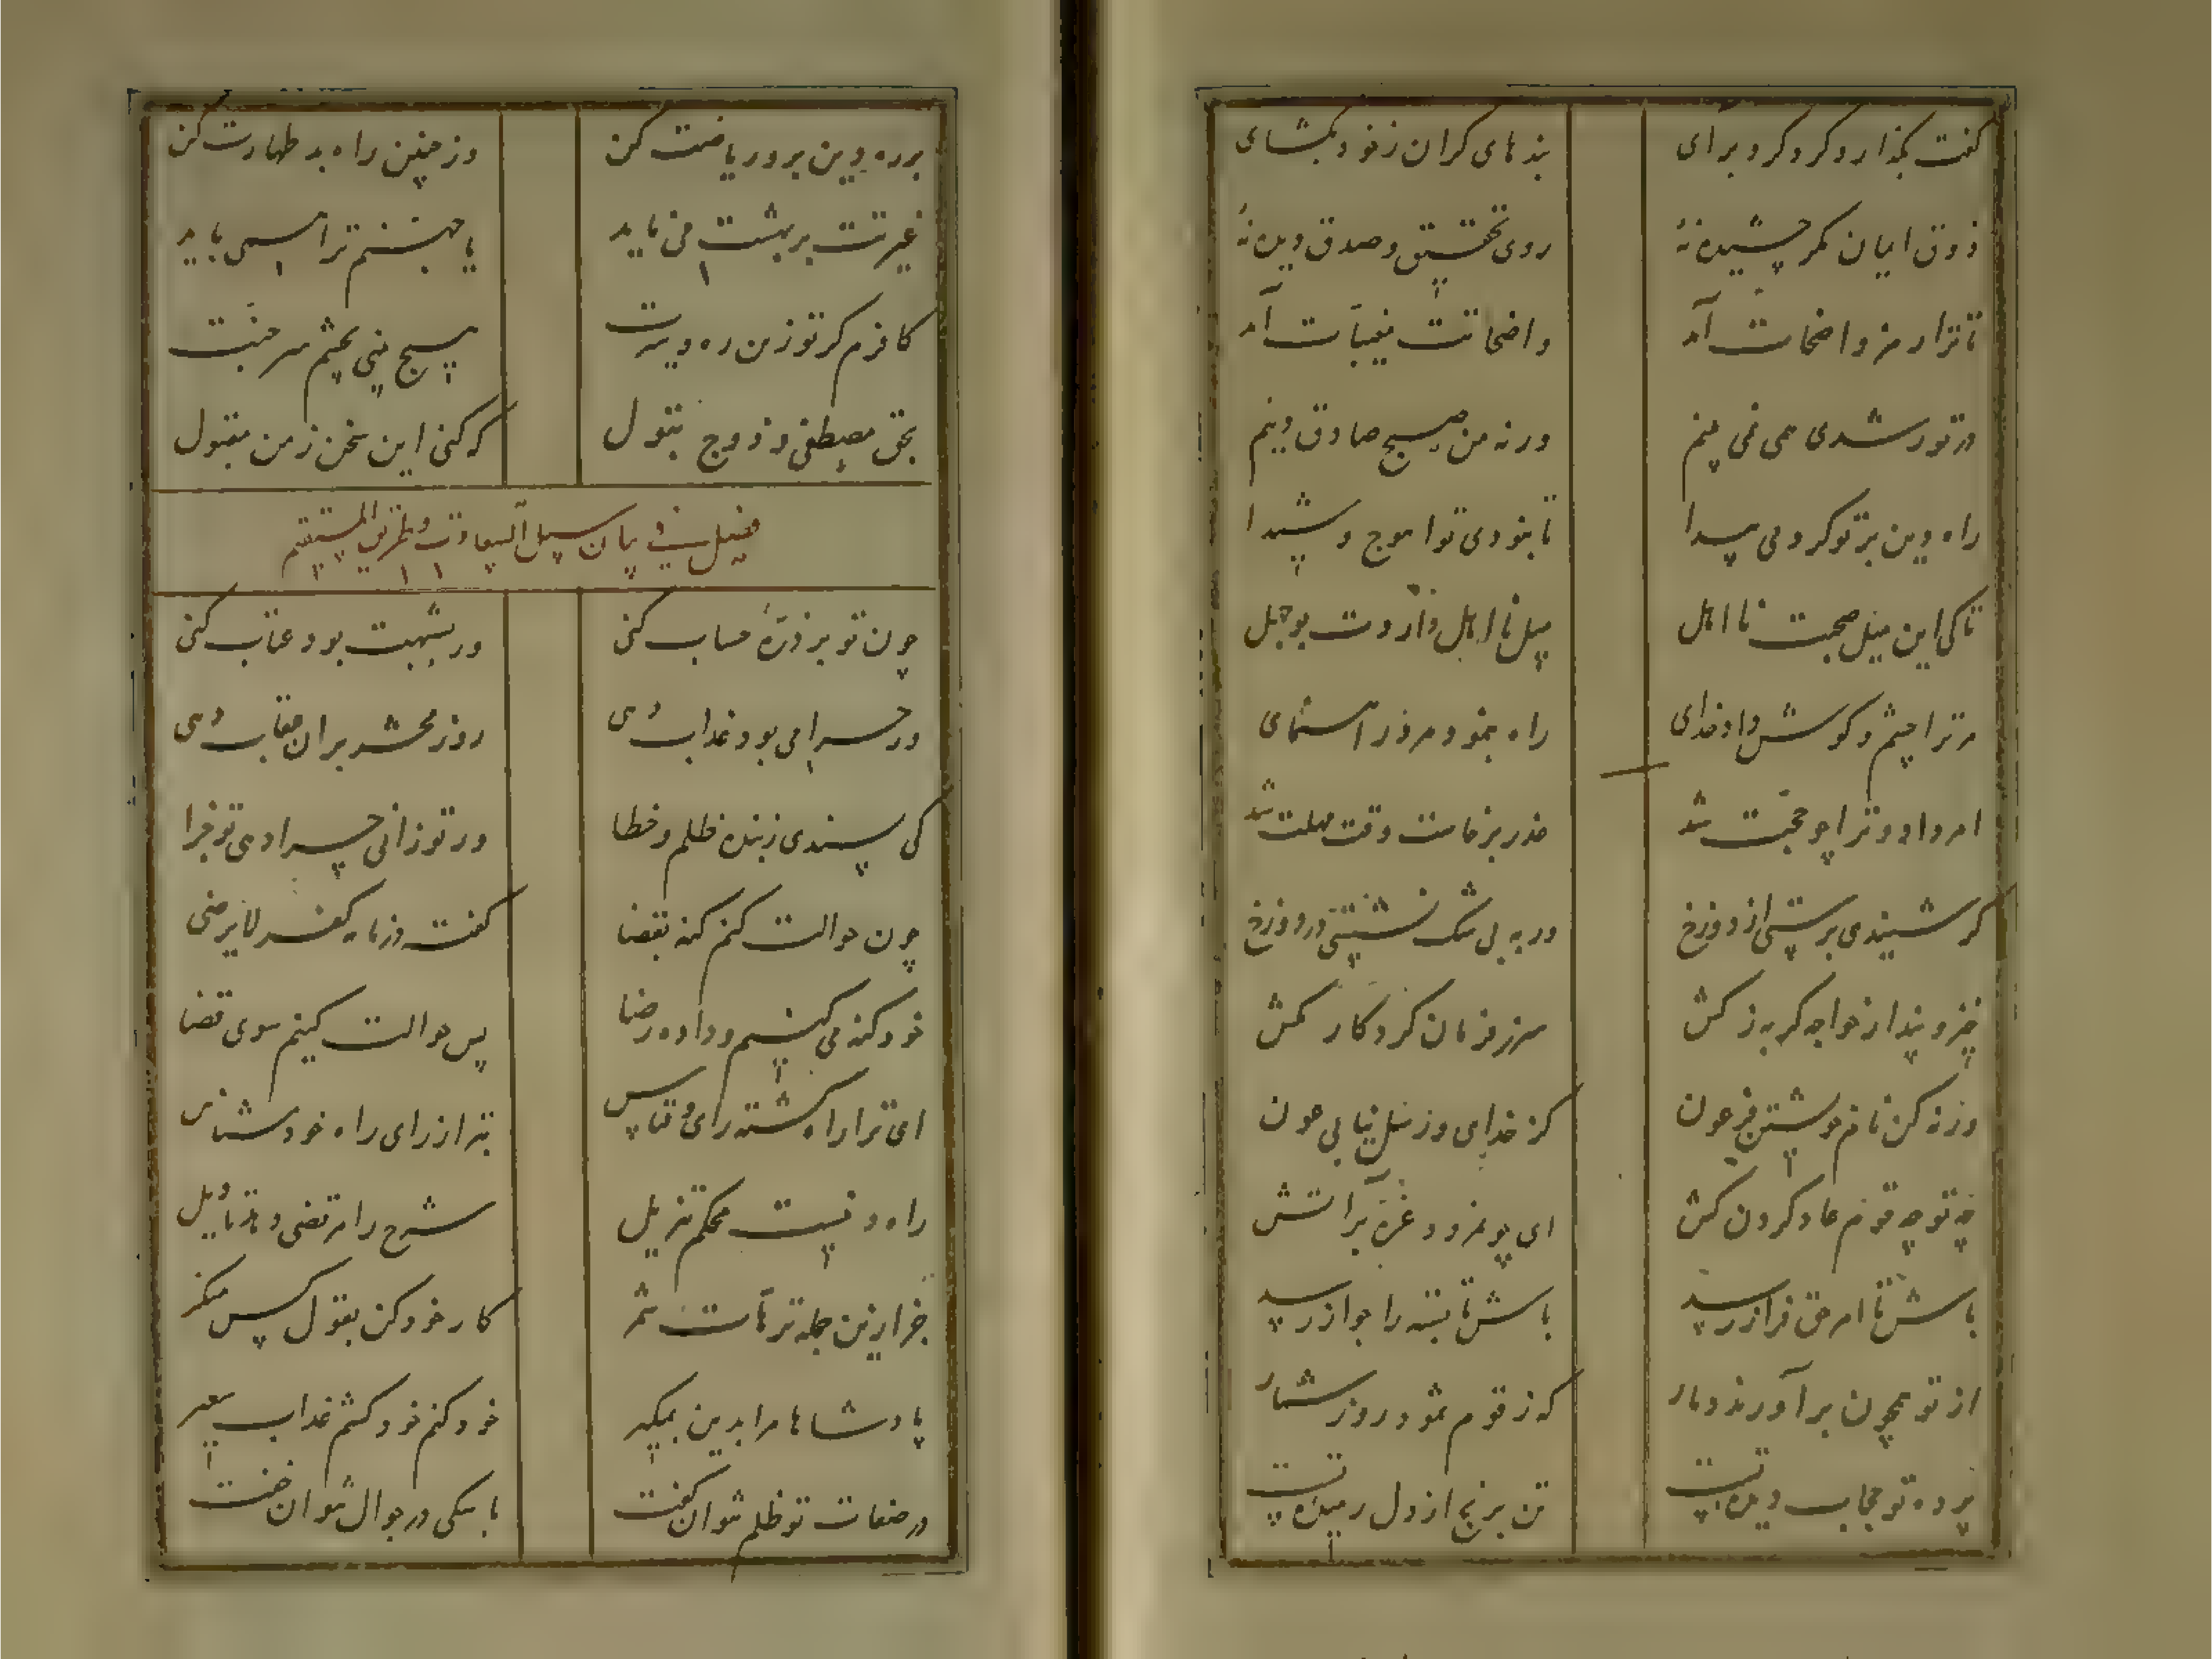 گفت بگذار و گرد گرد برآی بندهای گران ز خود بگشای
ذوق ایمان مگر چشیده نهٔ روی تحقیق و صدق دیده نهٔ
تا ترا رمز واضحات آمد واضحاتت مغیبات آمد
در تو رشدی همی نمی بینم ورنه من صبح صادق دینم
راه دین بر تو کردمی پیدا تا نبودی تو اهوج و شیدا
تا کی این میل صحبت نااهل میل نااهل دارد بوجهل
مر ترا چشم و گوش داد خدای راه بنمود مر ز راهنمای
امر داد و ترا چو حجت شد عذر برخاست وقت مهلت شد
گر شنیدی برستی از دوزخ ور نه بی شک نشستی در دوزخ
خیز و پندار خواجه گر به ز کش سر ز فرمان کردگار مکش
ورنه کن نام خویشتن فرعون کز خدای وز نیل یابی عون
چه تو چه قوم عاد گردن کش ای چو نمرود غره بر آتش
باش تا امر حق فراز رسد باش تا بنده را جواز رسد
از تو همچون برآورند دمار که ز قوم ثمود روز شمار
پرده تو حجاب دیده تست تن برنج از دل رمیده تست
بر ره دین برو ریاضت کن وز چنین راه بد طهارت کن
غیرتت بر بهشت می ناید یا جهنم ترا همی باید
کافرم گر تو زین ره و سیرت هیچ بینی بچشم سر جنت
بحق مصطفی و زوج بتول که کنی این سخن ز من مقبول
فصل فی بیان سبیل السعادت و طریق المستقیم
چون تو بر ذرهٔ حساب کنی ور بشبهت بود عتاب کنی
ور حرامی بود عذاب دهی روز محشر بر آن عقاب دهی
کی پسندی ز بنده ظلم و خطا ور تو رانی چرا دهی تو جزا
چون حوالت کنم گنه بقضا گفت در نامه کفر لایرضی
خود گنه می کنیم و داده رضا پس حوالت کنیم سوی قضا
ای ترا راه گشته رای و قیاس بتر از رای راه خود مشناس
راه دینست محکم تنزیل شرح را مرتضی دهد تاویل
جز ازین جمله ترهات شمر کار خود کن بقول کس منگر
پادشاها مرا بدین بمگیر خود کنم خود کشم عذاب سعیر
در صفات تو ظلم نتوان گفت با سگی در جوال نتوان خفت